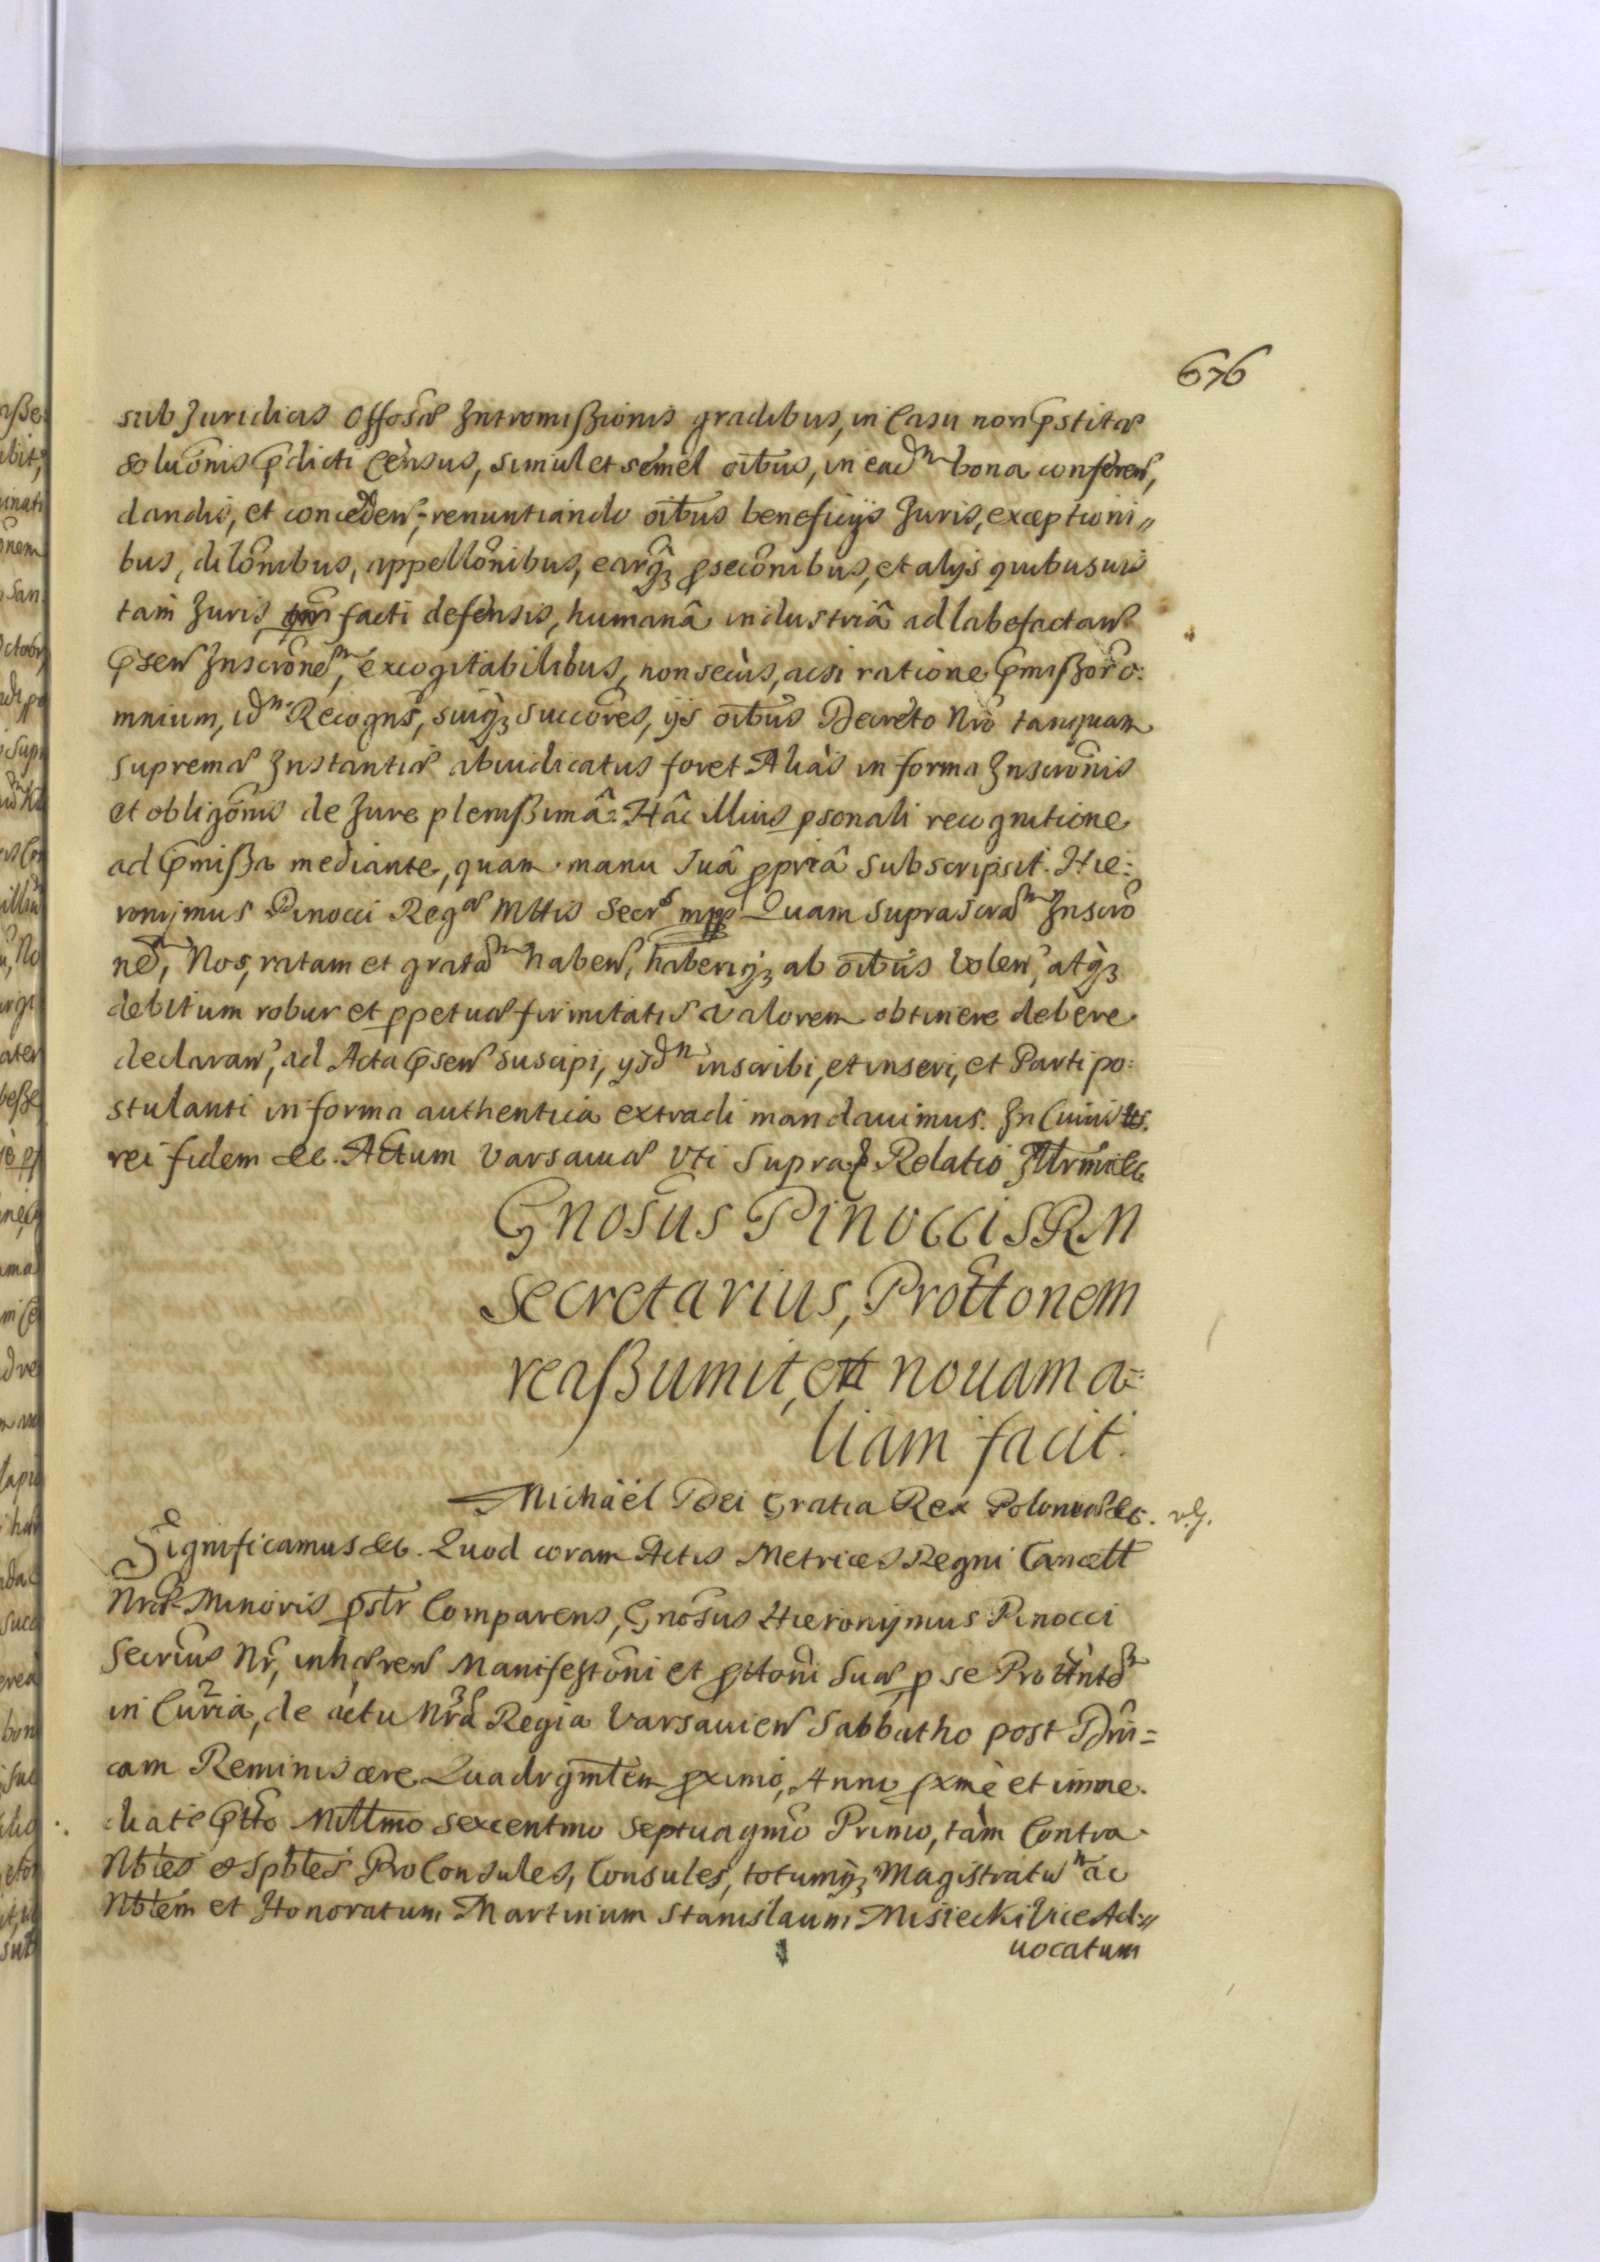 676
sub Juridicis Offosæ Intromißionis gradibus, in Casu non pstitæ
soluonis pdicti Census, simul et semel oibus, in eadm bona conferen,
dandis, et conceden, renuntiando oibus beneficijs Juris, exceptioni
bus, dilonibus, appellonibus, earq3 psecõnibus, et alijs quibusuis
tam Juris, qm facti defensis, humanâ industriâ ad labefactan
psen Inscronem, excogitabilibus, non secùs, acsi ratione pmißor o:
mnium, idm Recogns, suiq3 succores, ijs oibus Decreto Nro tanquam
supremæ Instantiæ abiudicatus foret Aliàs in forma Inscronis
et obligonis de Jure plenißimâ. Hâc illius psonali recognitione
ad pmißa mediante, quam manu suâ ppriâ subscripsit. Hie:
ronijmus Pinocci Regæ Mttis Secrs mpp Quam suprascram Inscro
nem, Nos, ratam et gratam haben, haberiq3 ab oibus volen, atq3
debitum robur et ppetuæ firmitatis valorem obtinere debere
declaran, ad Acta psen suscipi, ijsdm inscribi, et inseri, et Parti po:
stulanti in forma authentica extradi mandauimus. In Cuius
rei fidem &c. Actum Varsauiæ Vti Supra. Relatio
Gnosus Pinocci SRM
Secretarius, Prottonem
reaßumit, et nouam a=
liam facit.
Michaël Dei Gratia Rex Poloniæ &c.
Significamus &c. Quod coram Actis Metrices Regni Cancell
Nræ Minoris pstr Comparens, Gnosus Hieronijmus Pinocci
Secrius Nr, inhæren Manifestoni et pttoni Suæ, p se
in Curia, de actu Nra Regia Varsauien Sabbatho post Dni=
cam Reminiscere Quadrgmlem pximò, Anni pxmè et imme
diatè ptto Millmo sexcentmo septuagmo Primo, tàm Contra
Nbles et Spbles ProConsules, Consules, totumq3 Magistratum ac
Nblem et Honoratum Martinum Stanislaum Misiecki Vice Ad=
uocatum